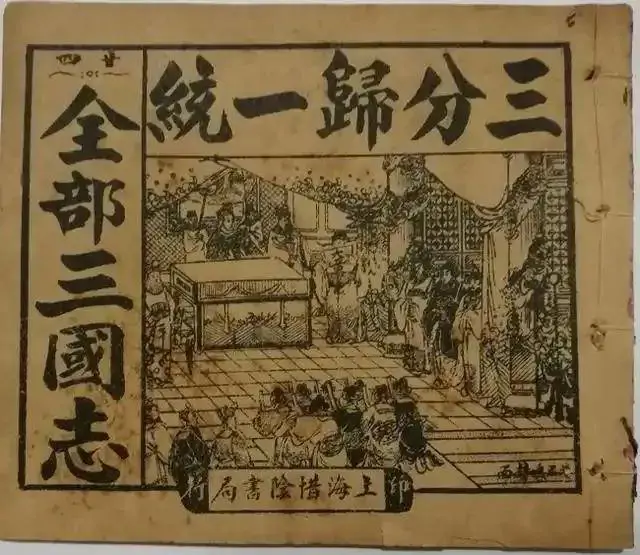 三分歸一統
廿四
全部三國志
印上海惜陰書局行